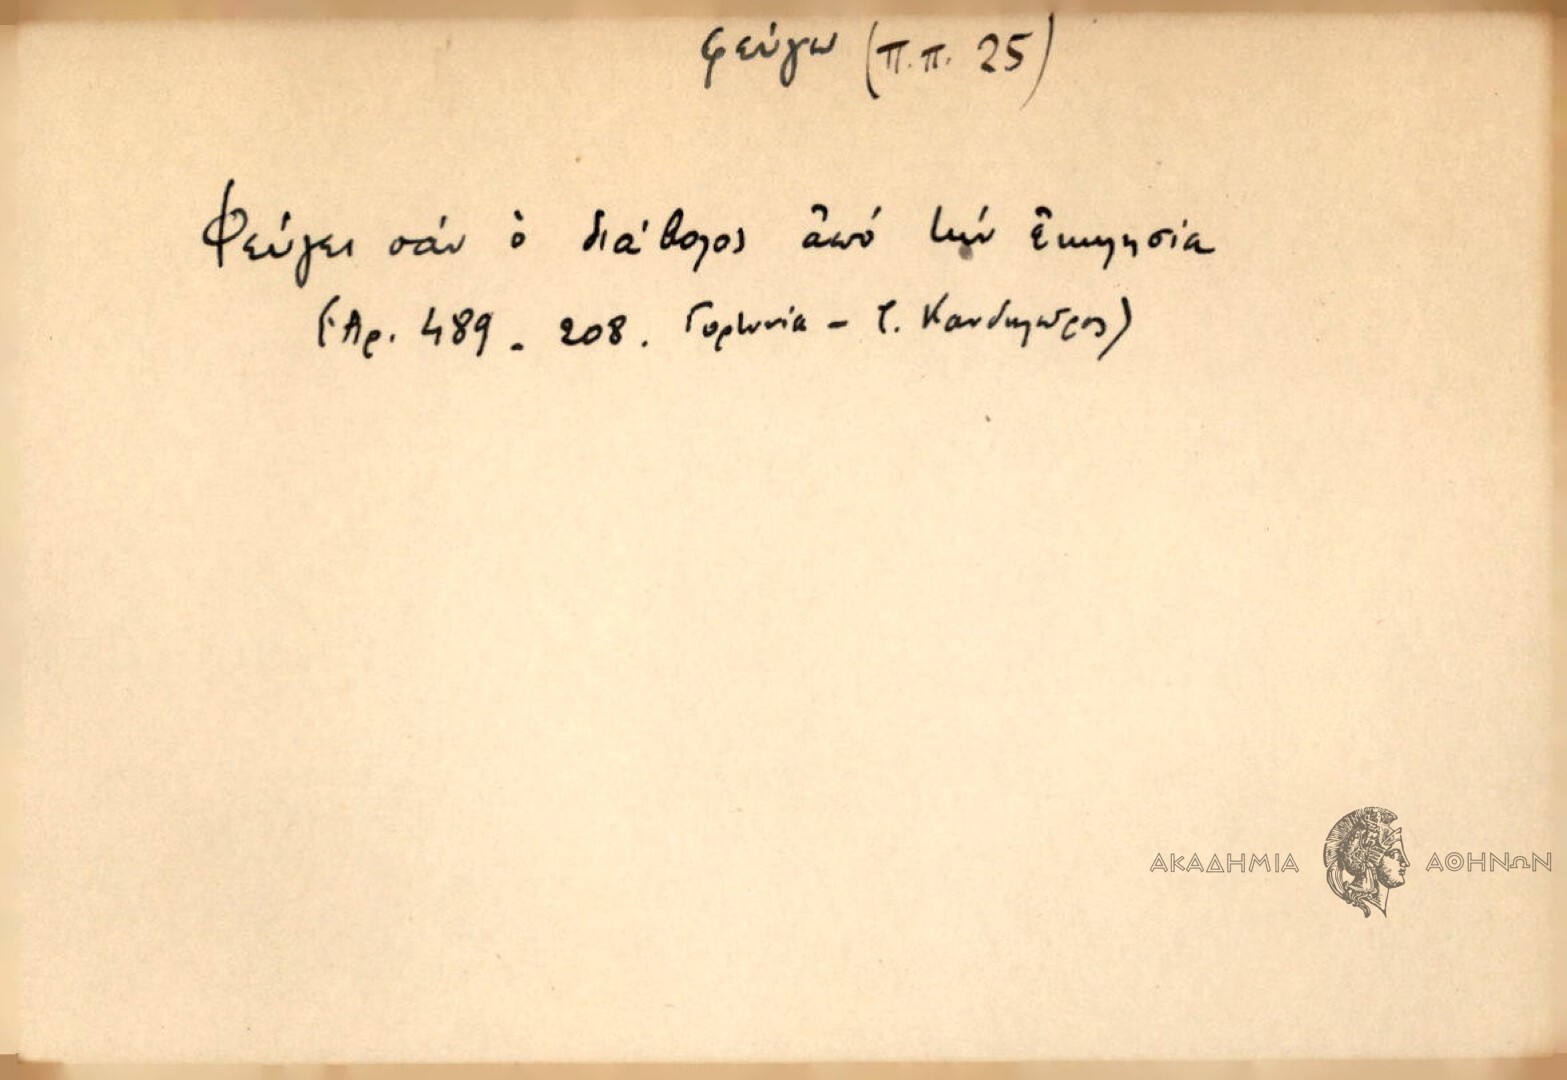 φεύγω (π.π. 25)
Φεύγει σάν ὁ διάβολος ἀπό τήν ἐκκλησία
(Ἀρ. 489 - 208. Γορτυνία - Τ. Κανδηλῶρος)
ΑΚΑΔΗΜΙΑ ΑΘΗΝΩΝ